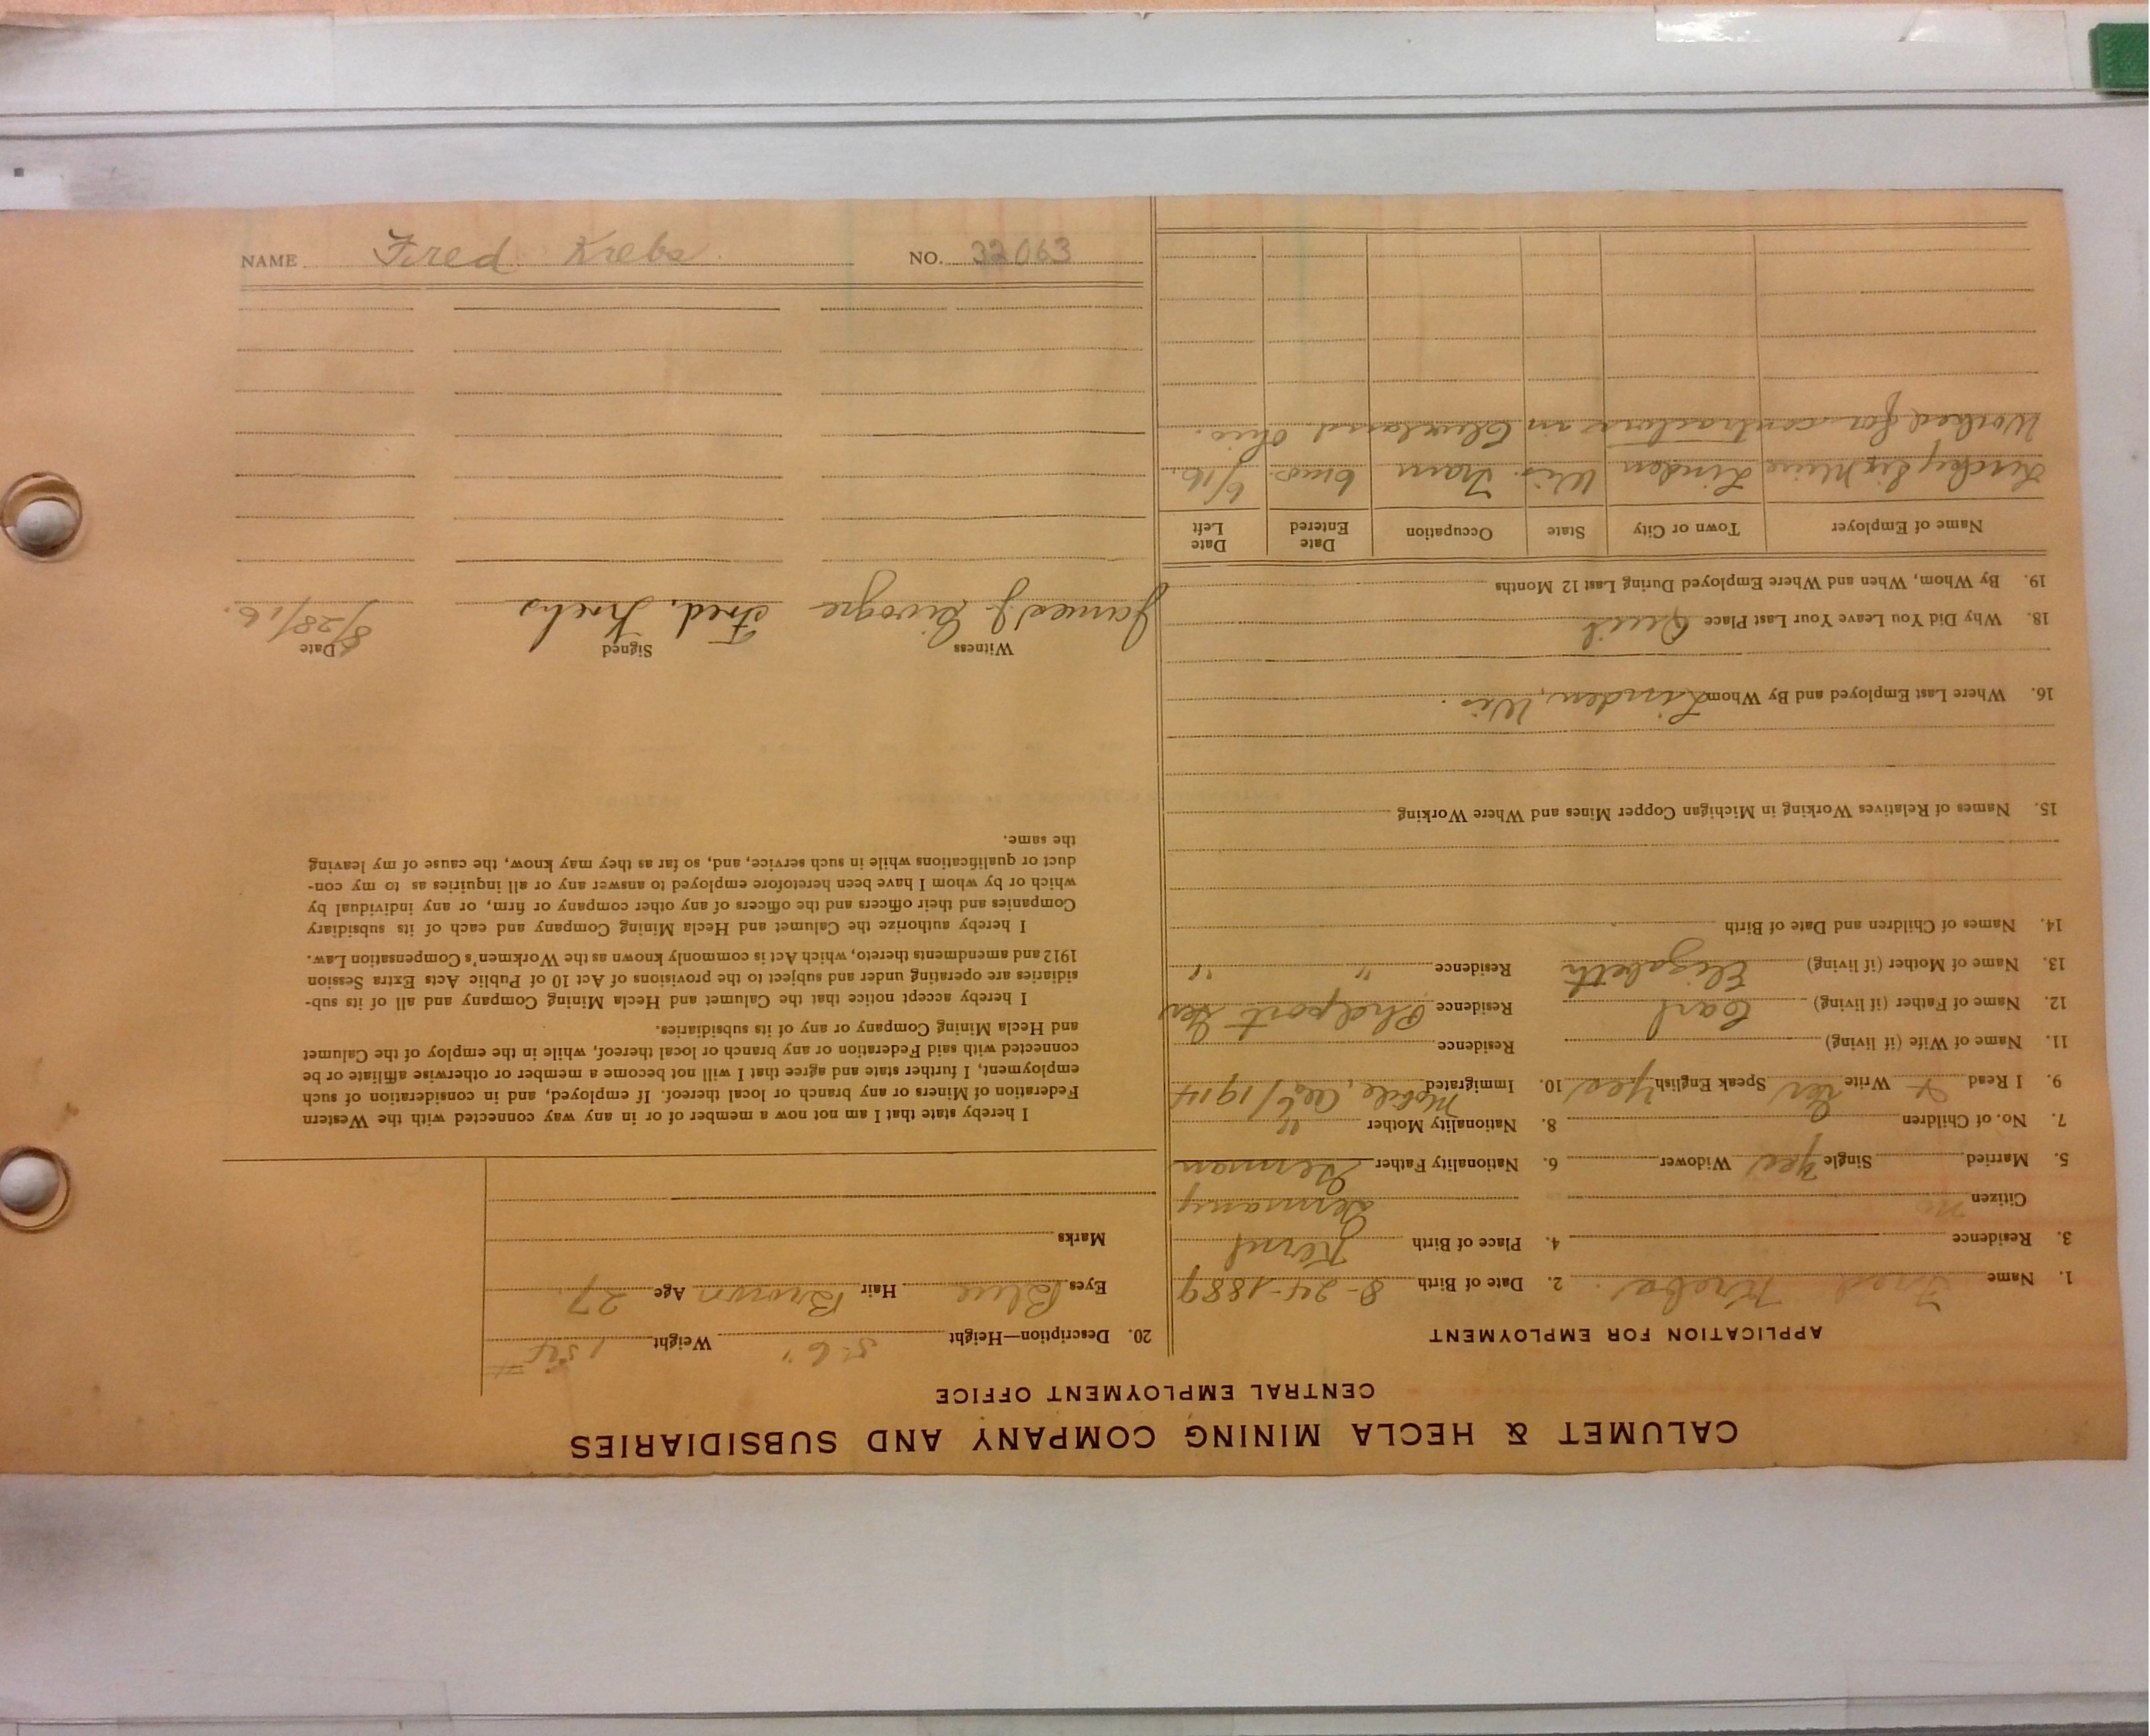 CALUMET & HECLA MINING COMPANY AND SUBSIDIARIES
CENTRAL EMPLOYMENT OFFICE
APPLICATION FOR EMPLOYMENT
1. Name Fred Krebs 2. Date of Birth 8-24-1889
3. Residence 4. Place of Birth
Citizen No Germany
5. Married Single Yes Widower 6. Nationality Father German
7. No. of Children 8. Nationality Mother "
9. I Read + Write Ger Speak English Yes 10. Immigrated Mobile, 1914
11. Name of Wife (if living) Residence
12. Name of Father (if living) Carl Residence Ger
13. Name of Mother (if living) Elizabeth Residence " "
14. Names of Children and Date of Birth
15. Names of Relatives Working in Michigan Copper Mines and Where Working
16. Where Last Employed and By Whom Linden, Wis.
18. Why Did You Leave Your Last Place Quit
19. By Whom, When and Where Employed During Last 12 Months
Name of Employer Town or City State Occupation Date Entered Date Left
Six Mine Linden Wis. Tram 6 mos. 6/16.
Worked for contractors in Cleveland Ohio.
20. Description—Height 5'6" Weight
Eyes Blue Hair Brown Age 27
Marks
I hereby state that I am not now a member of or in any way connected with the Western
Federation of Miners or any branch or local thereof. If employed, and in consideration of such
employment, I further state and agree that I will not become a member or otherwise affiliate or be
connected with said Federation or any branch or local thereof, while in the employ of the Calumet
and Hecla Mining Company or any of its subsidiaries.
I hereby accept notice that the Calumet and Hecla Mining Company and all of its sub-
sidiaries are operating under and subject to the provisions of Act 10 of Public Acts Extra Session
1912 and amendments thereto, which Act is commonly known as the Workmen's Compensation Law.
I hereby authorize the Calumet and Hecla Mining Company and each of its subsidiary
Companies and their officers and the officers of any other company or firm, or any individual by
which or by whom I have been heretofore employed to answer any or all inquiries as to my con-
duct or qualifications while in such service, and, so far as they may know, the cause of my leaving
the same.
Witness Signed Date
James J. Fred. Krebs 8/28/16.
NAME Fred Krebs. NO. 32063